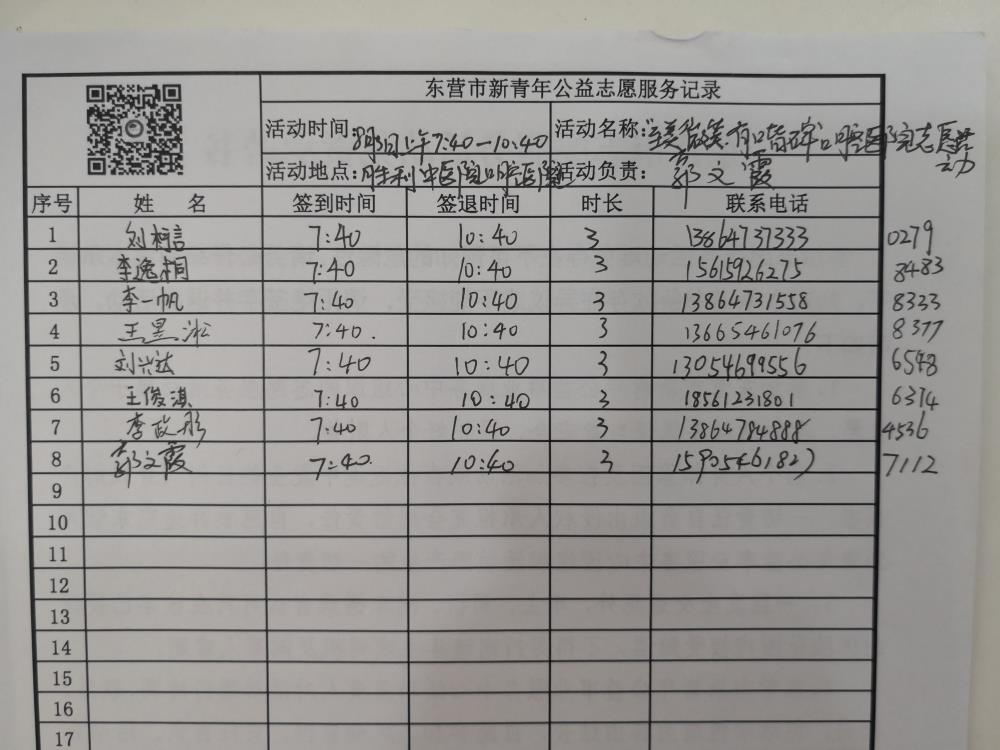 东营市新青年公益志愿服务记录
活动时间：8月3日上午7:40—10:40 活动名称："美微笑.有口皆碑"口腔医院志愿活动
活动地点：胜利中医院口腔医院 活动负责：郭文霞
序号 姓 名 签到时间 签退时间 时长 联系电话
1 刘桐言 7:40 10:40 3 13864737333 0279
2 李逸桐 7:40 10:40 3 15615926275 8483
3 李一帆 7:40 10:40 3 13864731558 8333
4 王昱淞 7:40. 10:40 3 13665461076 8377
5 刘兴达 7:40 10:40 3 13054699556 6548
6 王俊淇 7:40 10:40 3 18561231801 6374
7 李政彤 7:40 10:40 3 13864784888 4536
8 郭文霞 7:40. 10:40 3 15905461827 7112
9
10
11
12
13
14
15
16
17